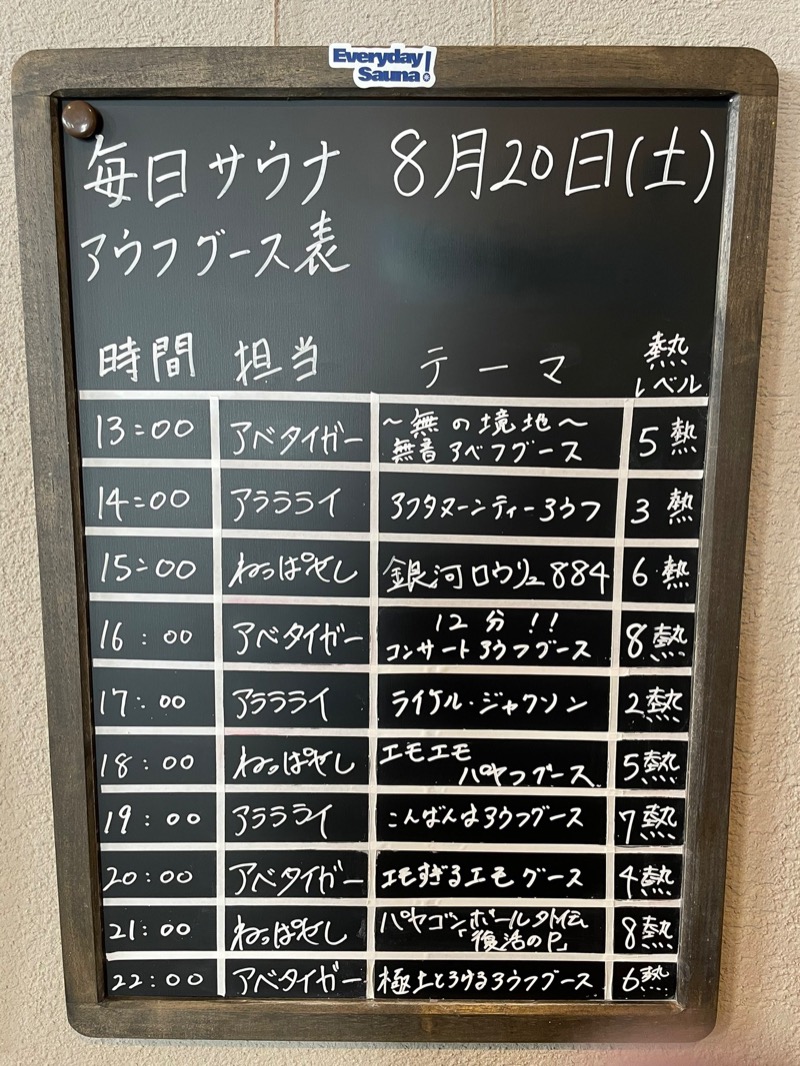 Everyday
Sauna!
毎日サウナ 8月20日(土)
アウフグース表
時間 担当 テーマ 熱レベル
13:00 アベタイガー ～無の境地～ 無音アベフグース 5熱
14:00 アラララライ アフタヌーンティーアウフ 3熱
15:00 ねっぱぜし 銀河ロウリュ884 6熱
16:00 アベタイガー 12分!! コンサートアウフグース 8熱
17:00 アラララライ ライケル・ジャクソン 2熱
18:00 ねっぱぜし エモエモ パヤフグース 5熱
19:00 アラララライ こんばんはアウフグース 7熱
20:00 アベタイガー エモすぎるエモグース 4熱
21:00 ねっぱぜし パヤゴンボール外伝 復活のP 8熱
22:00 アベタイガー 極上とろけるアウフグース 6熱